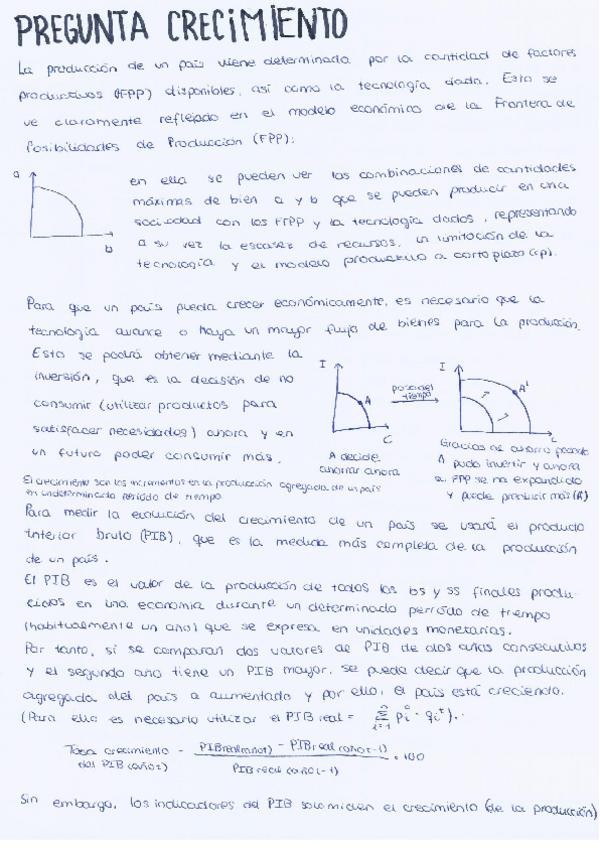 PREGUNTA CRECIMIENTO
La producción de un país viene determinada por la cantidad de factores
productivos (FFPP) disponibles, así como la tecnología dada. Esto se
ve claramente reflejado en el modelo económico de la Frontera de
Posibilidades de Producción (FPP):
a
b
en ella se pueden ver las combinaciones de cantidades
máximas de bien a y b que se pueden producir en una
sociedad con los FFPP y la tecnología dados, representando
a su vez la escasez de recursos, la limitación de la
tecnología y el modelo productivo a corto plazo (cp).
Para que un país pueda crecer económicamente, es necesario que la
tecnología avance o haya un mayor flujo de bienes para la producción.
Esto se podrá obtener mediante la
inversión, que es la decisión de no
consumir (utilizar productos para
satisfacer necesidades) ahora y en
un futuro poder consumir más.
I
A
C
A decide
ahorrar ahora
pasa el
tiempo
I
A'
C
Gracias al ahorro pasado
A pudo invertir y ahora
su FPP se ha expandido
y puede producir más (A')
El crecimiento son los incrementos en la producción agregada de un país
en un determinado período de tiempo
Para medir la evolución del crecimiento de un país se usará el producto
interior bruto (PIB), que es la medida más completa de la producción
de un país.
El PIB es el valor de la producción de todos los bs y ss finales produ-
cidos en una economía durante un determinado período de tiempo
(habitualmente un año) que se expresa en unidades monetarias.
Por tanto, si se comparan dos valores de PIB de dos años consecutivos
y el segundo año tiene un PIB mayor, se puede decir que la producción
agregada del país a aumentado y por ello, el país está creciendo.
(Para ello es necesario utilizar el PIB real = Σ Pi⁰ · qiᵗ).
Tasa crecimiento = PIB real (año t) - PIB real (año t-1) · 100
del PIB (año t) PIB real (año t-1)
Sin embargo, los indicadores del PIB solo miden el crecimiento (de la producción)